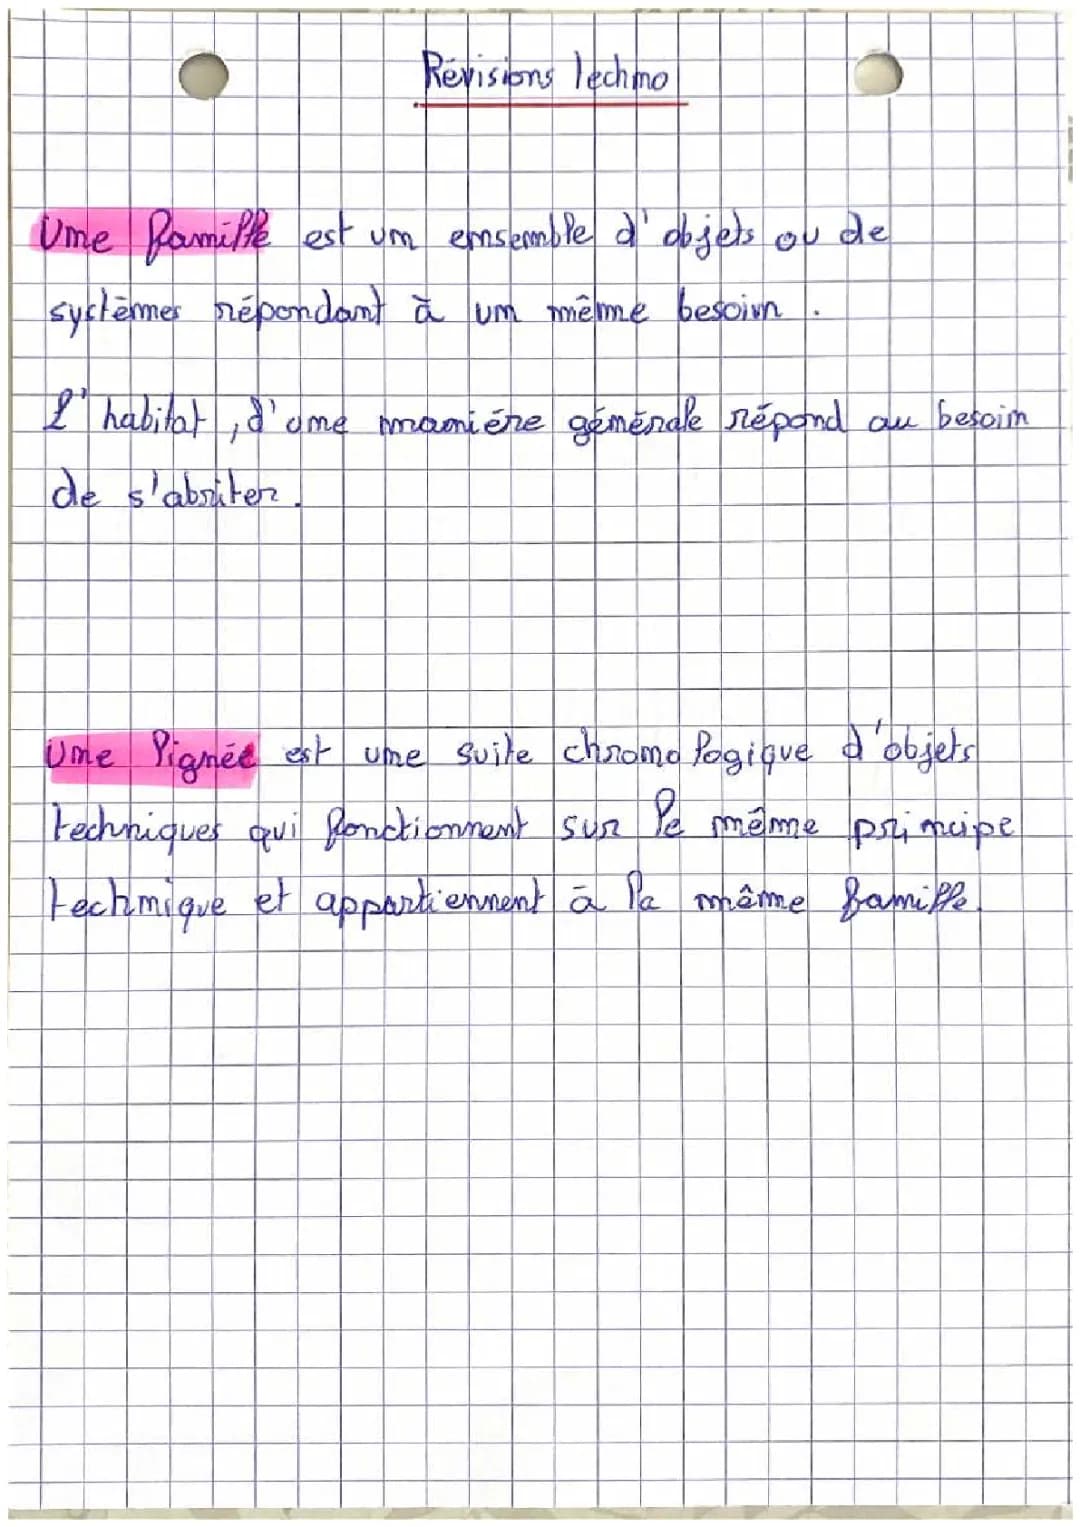 Révisions Techno
Une famille est un ensemble d'objets ou de
systèmes répondant à un même besoin.
L'habitat, d'une manière générale répond au besoin
de s'abriter.
Une lignée est une suite chronologique d'objets
techniques qui fonctionnent sur le même principe
technique et appartiennent à la même famille.